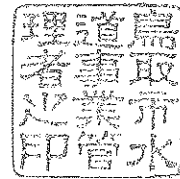 鳥取市水
道事業管
理者之印